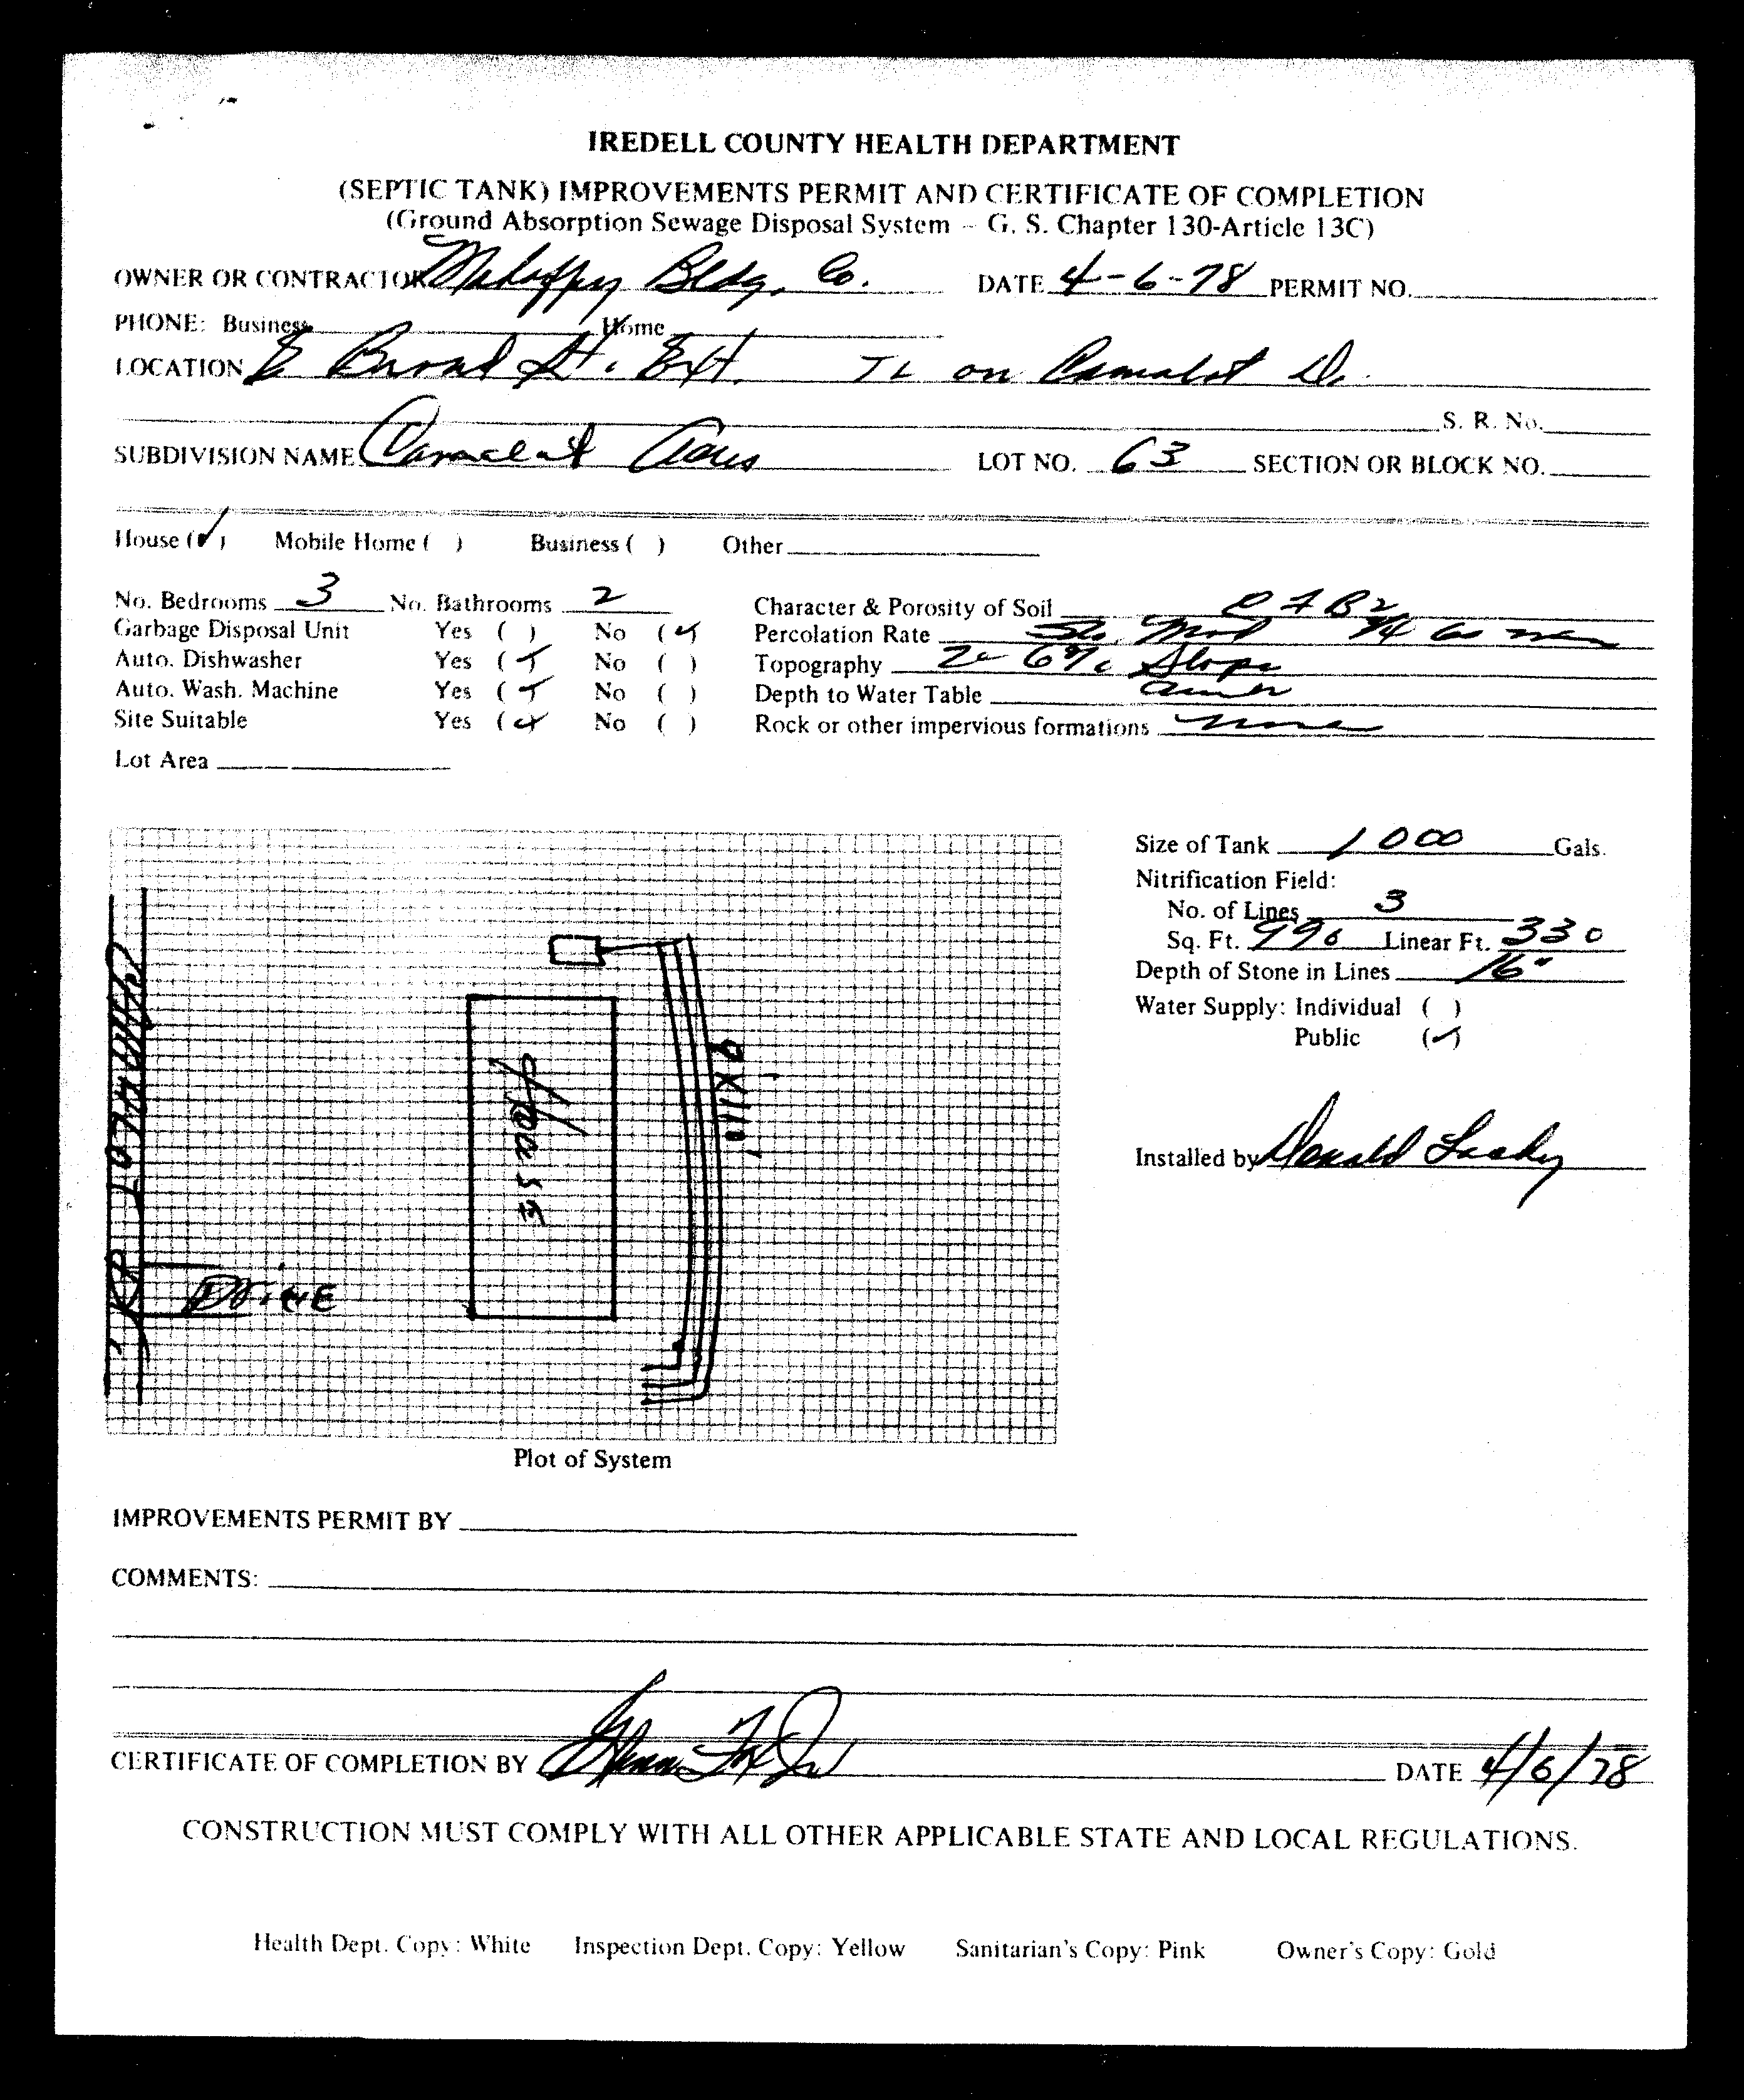 IREDELL COUNTY HEALTH DEPARTMENT
(SEPTIC TANK) IMPROVEMENTS PERMIT AND CERTIFICATE OF COMPLETION
(Ground Absorption Sewage Disposal System – G. S. Chapter 130-Article 13C)
OWNER OR CONTRACTOR Mehaffey Bldg. Co. DATE 4-6-78 PERMIT NO.
PHONE: Business Home
LOCATION E Broad St. Ext. TL on Camalot Dr.
S. R. No.
SUBDIVISION NAME LOT NO. 63 SECTION OR BLOCK NO.
House (✓) Mobile Home ( ) Business ( ) Other
No. Bedrooms 3 No. Bathrooms 2 Character & Porosity of Soil
Garbage Disposal Unit Yes ( ) No (✓) Percolation Rate
Auto. Dishwasher Yes (✓) No ( ) Topography 2-6% Slope
Auto. Wash. Machine Yes (✓) No ( ) Depth to Water Table
Site Suitable Yes (✓) No ( ) Rock or other impervious formations none
Lot Area
Size of Tank 1000 Gals.
Nitrification Field:
No. of Lines 3
Sq. Ft. 990 Linear Ft. 330
Depth of Stone in Lines 16"
Water Supply: Individual ( )
Public (✓)
Installed by Donald Lasky
House
Drive
Plot of System
IMPROVEMENTS PERMIT BY
COMMENTS:
CERTIFICATE OF COMPLETION BY DATE 4/6/78
CONSTRUCTION MUST COMPLY WITH ALL OTHER APPLICABLE STATE AND LOCAL REGULATIONS.
Health Dept. Copy: White Inspection Dept. Copy: Yellow Sanitarian's Copy: Pink Owner's Copy: Gold